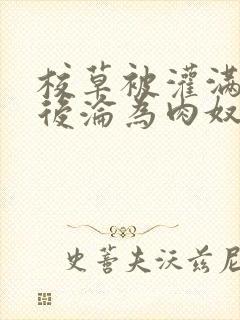 校草被灌满
後淪為肉奴
史蒂夫沃兹尼